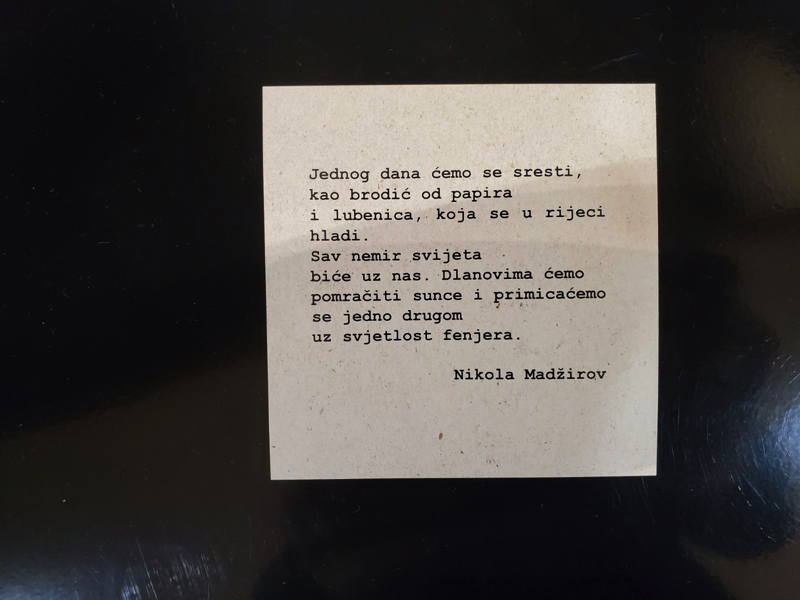 Jednog dana ćemo se sresti,
kao brodić od papira
i lubenica, koja se u rijeci
hladi.
Sav nemir svijeta
biće uz nas. Dlanovima ćemo
pomračiti sunce i primicaćemo
se jedno drugom
uz svjetlost fenjera.
Nikola Madžirov